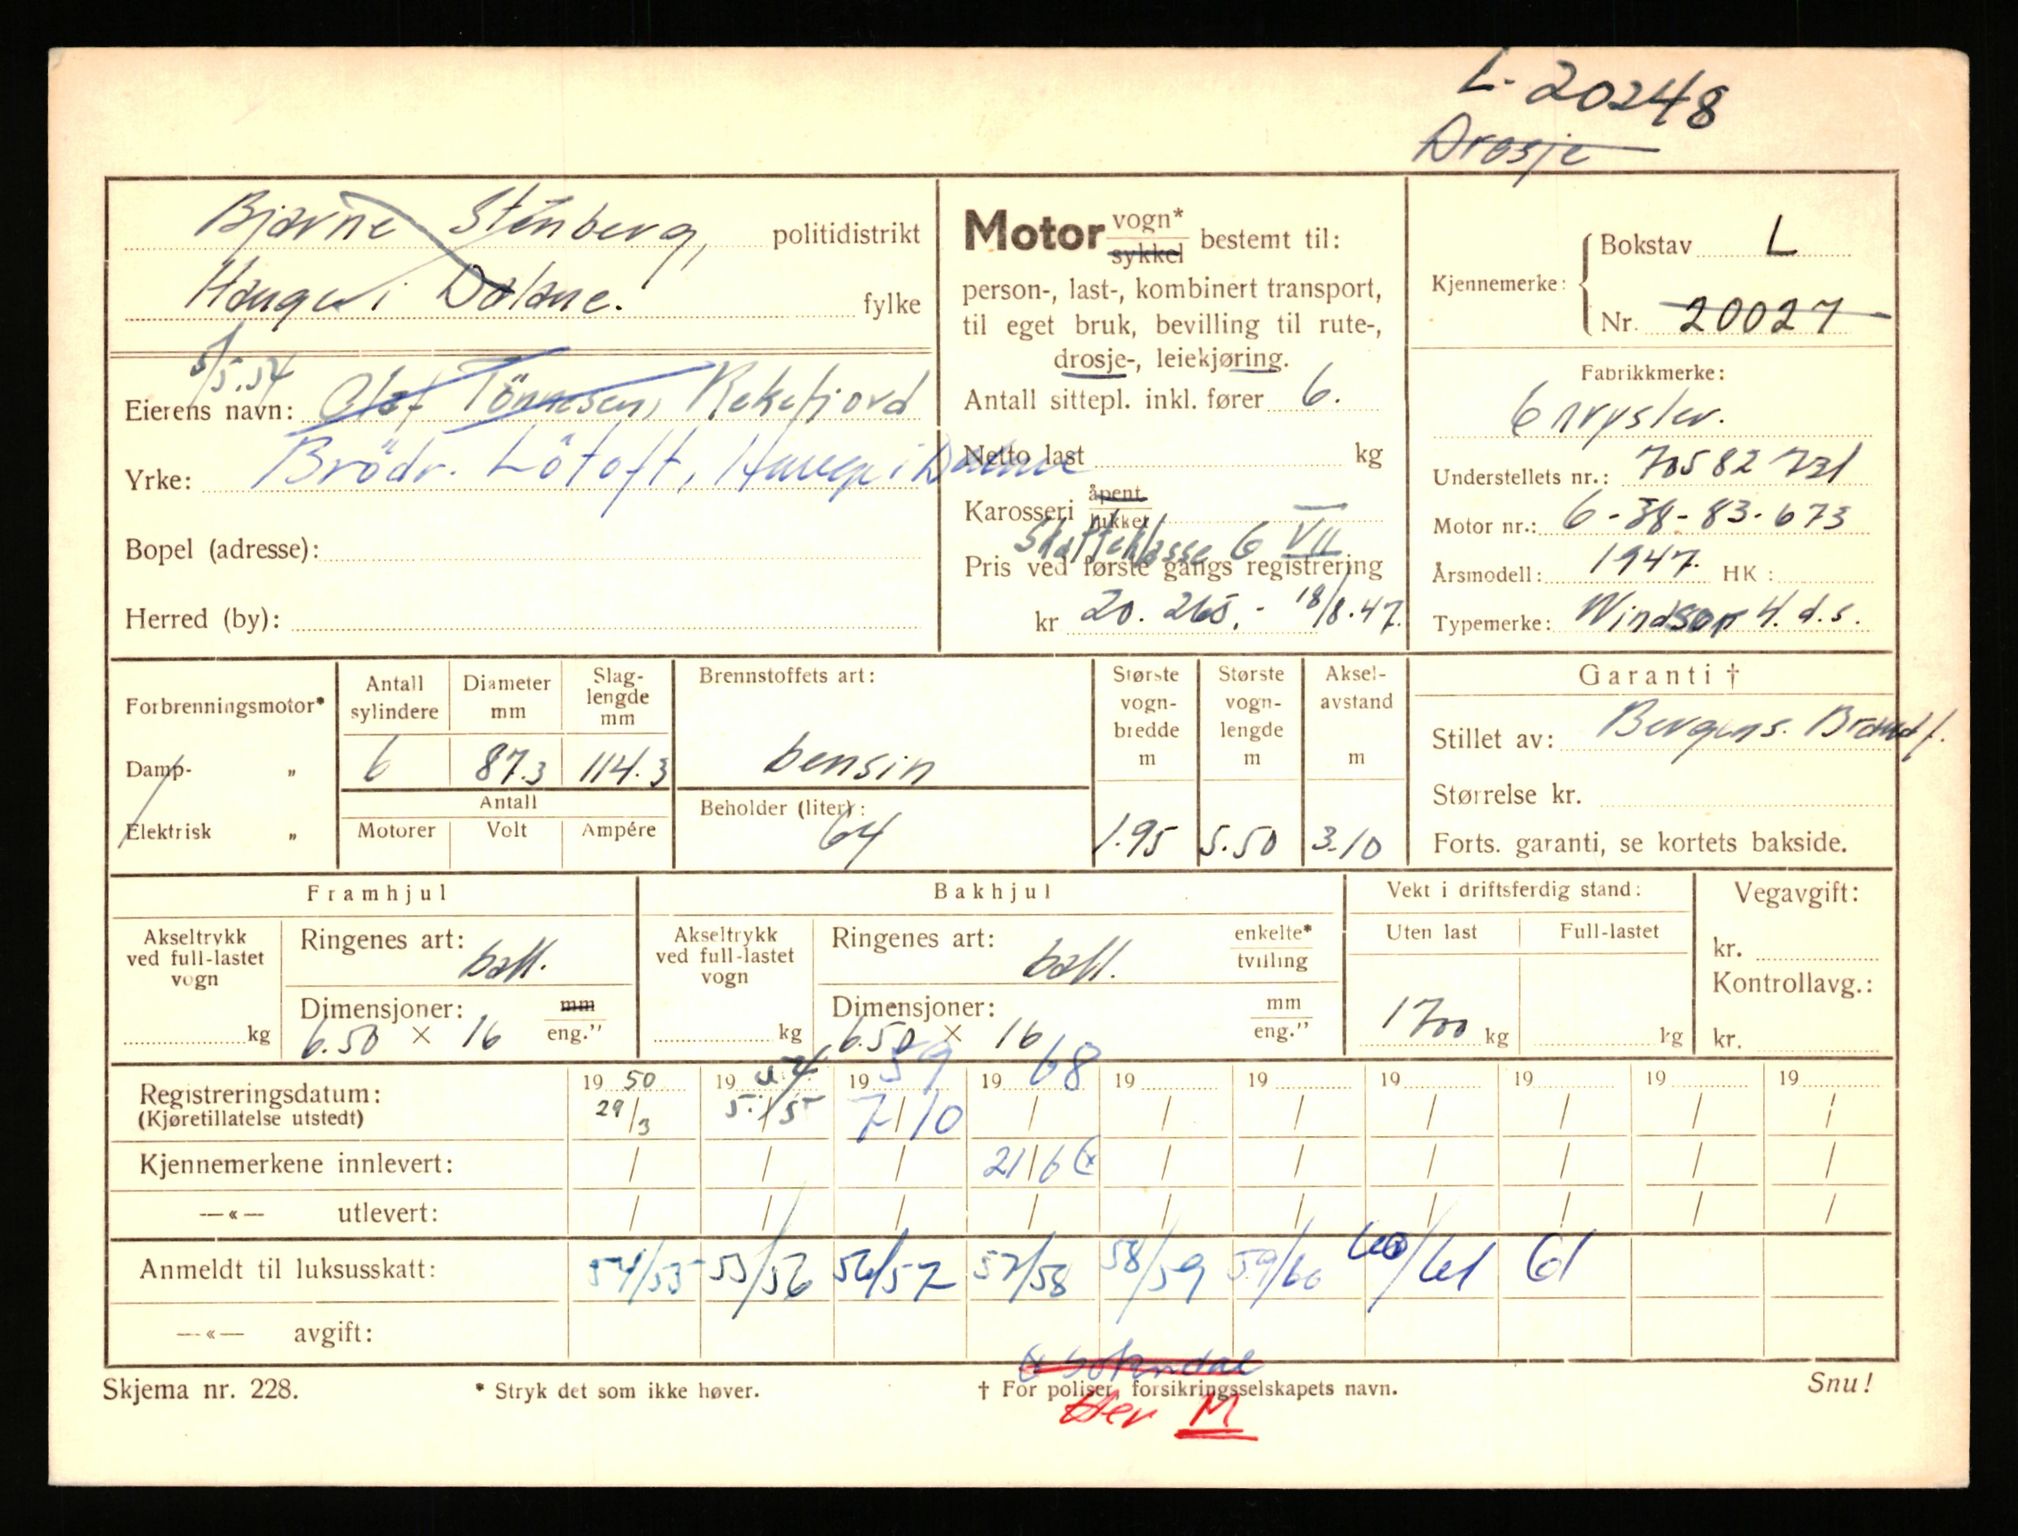 L-20248
Drosje
Bjarne Stenberg, politidistrikt
Hauge i Dalane. fylke
5/5.54
Eierens navn: Olaf Tönnesen, Rekefjord
Yrke: Brödr. Lötoft, Hauge i Dalane
Bopel (adresse):
Herred (by):
Motor vogn* sykkel bestemt til:
person-, last-, kombinert transport,
til eget bruk, bevilling til rute-,
drosje-, leiekjøring.
Antall sittepl. inkl. fører 6.
Netto last kg
Karosseri åpent lukket
Skatteklasse 6 VII
Pris ved første gangs registrering
kr 20.265.- 18/8.47.
Kjennemerke: Bokstav L
Nr. 20027
Fabrikkmerke:
Chrysler.
Understellets nr.: 70582731
Motor nr.: 6-38-83-673
Årsmodell: 1947. HK:
Typemerke: Windsor 4.d.s.
Forbrenningsmotor*
Damp- „
Elektrisk „
Antall sylindere 6
Diameter mm 87.3
Slag-lengde mm 114.3
Antall
Motorer Volt Ampére
Brennstoffets art:
bensin
Beholder (liter):
64
Største vogn-bredde m 1.95
Største vogn-lengde m 5.50
Aksel-avstand m 3.10
Garanti †
Stillet av: Bergens. Brandf.
Størrelse kr.
Forts. garanti, se kortets bakside.
Framhjul
Akseltrykk ved full-lastet vogn
kg
Ringenes art: ball.
Dimensjoner: mm
6.50 × 16 eng.”
Bakhjul
Akseltrykk ved full-lastet vogn
kg
Ringenes art: ball. enkelte* tvilling
Dimensjoner: mm
6.50 × 16 eng.”
Vekt i driftsferdig stand:
Uten last Full-lastet
1700 kg kg
Vegavgift:
kr.
Kontrollavg.:
kr.
Registreringsdatum: 19 50 19 54 19 59 19 68 19 19 19 19 19 19
(Kjøretillatelse utstedt) 29/3 5./5 7/10 / / / / / / /
Kjennemerkene innlevert: / / / 21/6 / / / / / /
—«— utlevert: / / / / / / / / / /
Anmeldt til luksusskatt: 54/55 55/56 56/57 57/58 58/59 59/60 60/61 61
—«— avgift:
Sokndal
Skjema nr. 228. * Stryk det som ikke høver. † For poliser, forsikringsselskapets navn. Snu!
Her M